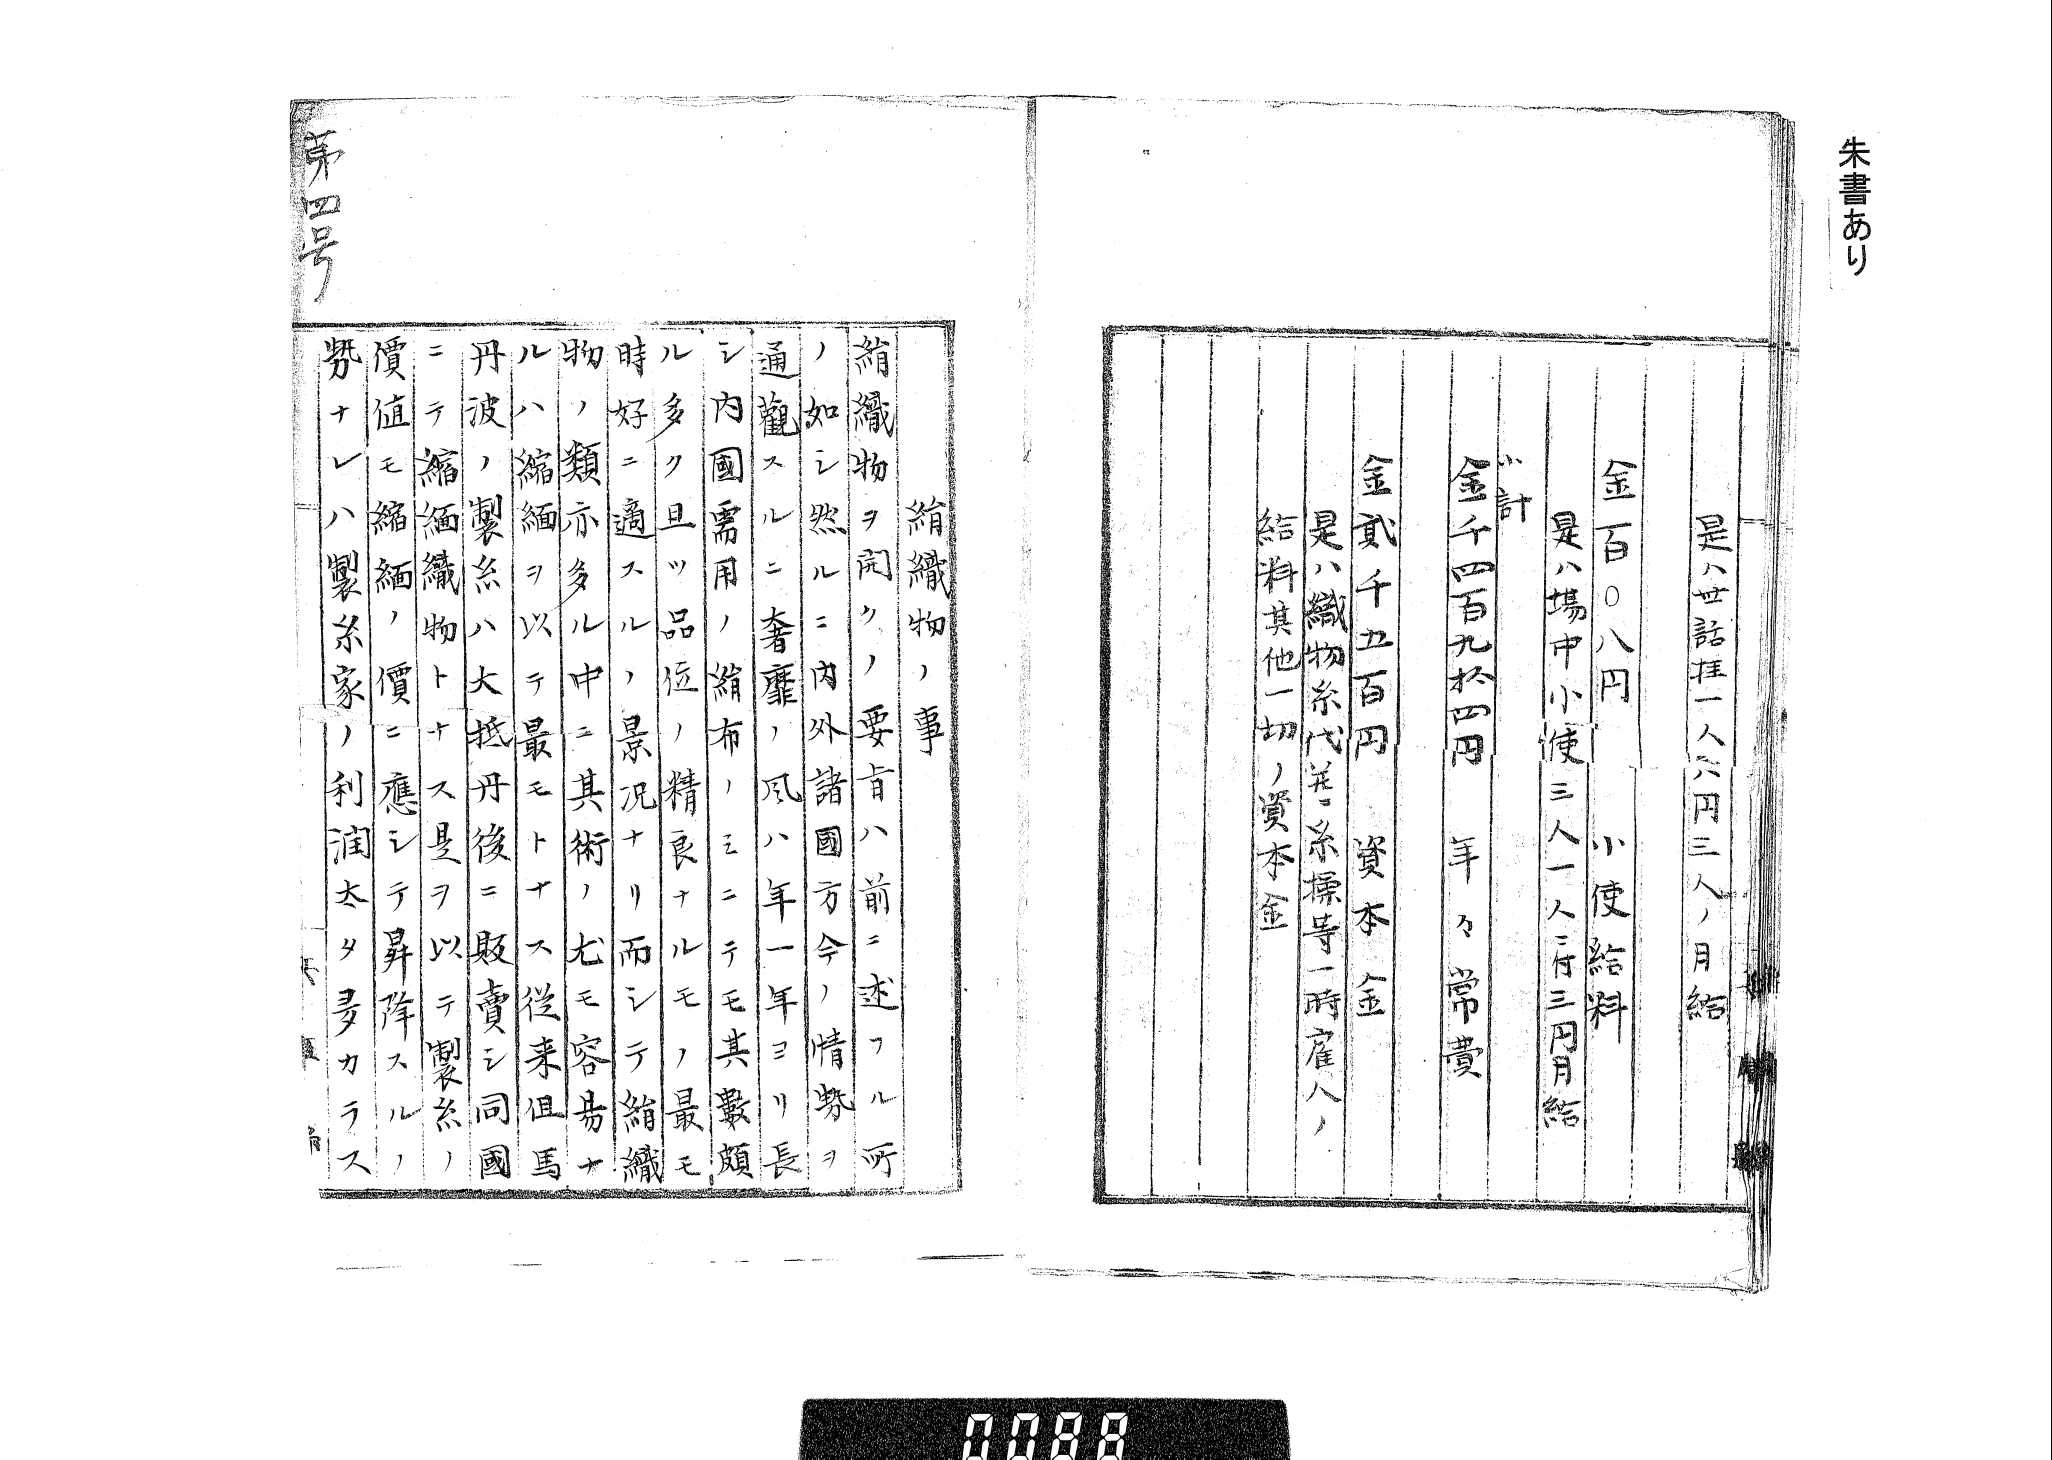 朱書あり
是ハ世話掛一人六円三人ノ月給
金百〇八円 小使給料
是ハ場中小使三人一人ニ付三円月給
小計
金千四百九拾四円 年々常費
金貳千五百円 資本金
是ハ織物糸代并ニ糸操等一時雇人ノ
給料其他一切ノ資本金
絹織物ノ事
絹織物ヲ開クノ要旨ハ前ニ述フル所
ノ如シ然ルニ内外諸國方今ノ情勢ヲ
通觀スルニ奢靡ノ風ハ年一年ヨリ長
シ内國需用ノ絹布ノミニテモ其數頗
ル多ク且ツ品位ノ精良ナルモノ最モ
時好ニ適スルノ景况ナリ而シテ絹織
物ノ類亦多ル中ニ其術ノ尤モ容昜ナ
ルハ縮緬ヲ以テ最モトナス従来但馬
丹波ノ製糸ハ大抵丹後ニ販賣シ同國
ニテ縮緬織物トナス是ヲ以テ製糸ノ
價値モ縮緬ノ價ニ應シテ昇降スルノ
勢ナレハ製糸家ノ利潤太タ多カラス
第四号
0088